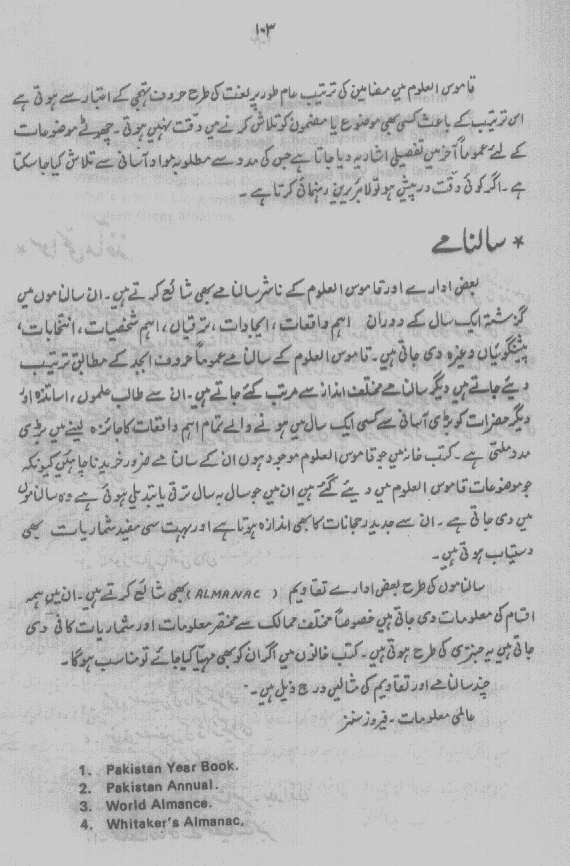 ۱۰۳
قاموس العلوم میں مضامین کی ترتیب عام طور پر لغت کی طرح حروف تہجی کے اعتبار سے ہوتی ہے
اس ترتیب کے باعث کسی بھی موضوع یا مضمون کو تلاش کرنے میں دقّت نہیں ہوتی۔ چھوٹے موضوعات
کے لئے عموماً آخر میں تفصیلی اشاریہ دیا جاتا ہے جس کی مدد سے مطلوبہ مواد آسانی سے تلاش کیا جا سکتا
ہے۔ اگر کوئی دقّت درپیش ہو تو لائبریرین رہنمائی کرتا ہے۔
* سالنامے
بعض ادارے اور قاموس العلوم کے ناشر سالنامے بھی شائع کرتے ہیں۔ ان سالناموں میں
گزشتہ ایک سال کے دوران اہم واقعات، ایجادات، ترقیاں، اہم شخصیات، انتخابات،
پیشگوئیاں وغیرہ دی جاتی ہیں۔ قاموس العلوم کے سالنامے عموماً حروف ابجد کے مطابق ترتیب
دیئے جاتے ہیں دیگر سالنامے مختلف انداز سے مرتب کئے جاتے ہیں۔ ان سے طالب علموں، اساتذہ اور
دیگر حضرات کو بڑی آسانی سے کسی ایک سال میں ہونے والے تمام اہم واقعات کا جائزہ لینے میں بڑی
مدد ملتی ہے۔ کتب خانہ میں جو قاموس العلوم موجود ہوں ان کے سالنامے ضرور خریدنا چاہئیں کیونکہ
جو موضوعات قاموس العلوم میں دیئے گئے ہیں ان میں جو سال بہ سال ترقی یا تبدیلی ہوتی ہے وہ سالناموں
میں دی جاتی ہے۔ ان سے جدید رجحانات کا بھی اندازہ ہوتا ہے اور بہت سی مفید شماریات بھی
دستیاب ہوتی ہیں۔
سالناموں کی طرح بعض ادارے تقاویم (ALMANAC) بھی شائع کرتے ہیں۔ ان میں ہمہ
اقسام کی معلومات دی جاتی ہیں خصوصاً مختلف ممالک سے مختصر معلومات اور شماریات کافی دی
جاتی ہیں یہ جنتری کی طرح ہوتی ہیں۔ کتب خانوں میں اگر ان کو بھی مہیّا کیا جائے تو مناسب ہوگا۔
چند سالنامے اور تقاویم کی مثالیں درج ذیل ہیں۔
عالمی معلومات۔ فیروز سنز
1. Pakistan Year Book.
2. Pakistan Annual.
3. World Almance.
4. Whitaker's Almanac.